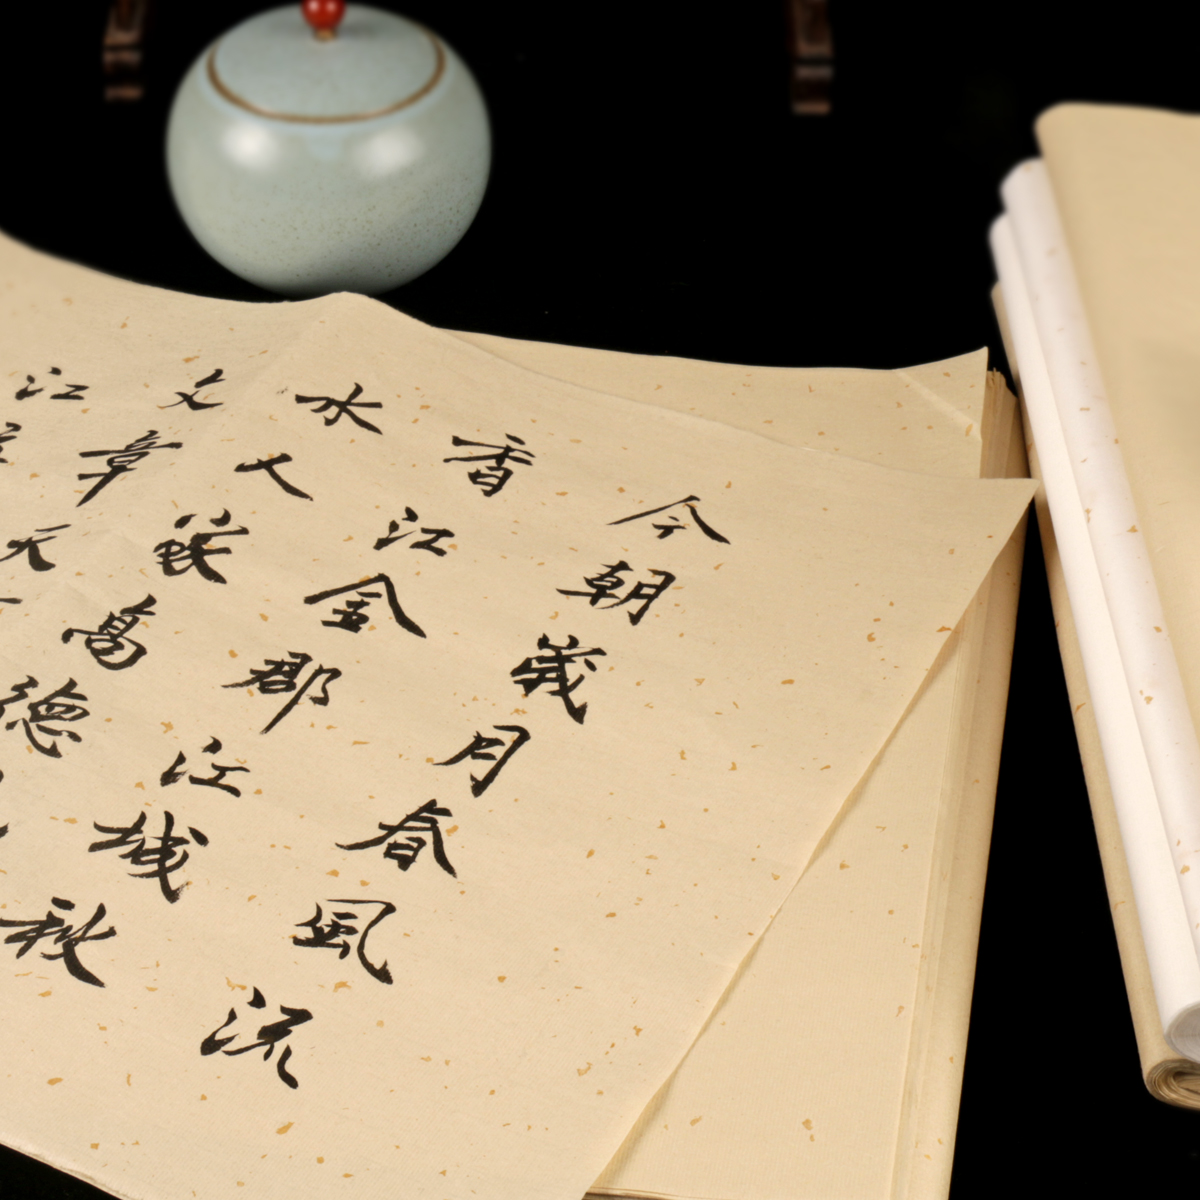 今朝歲月春風流
香江金郡江城秋
水人高德
文章天
江